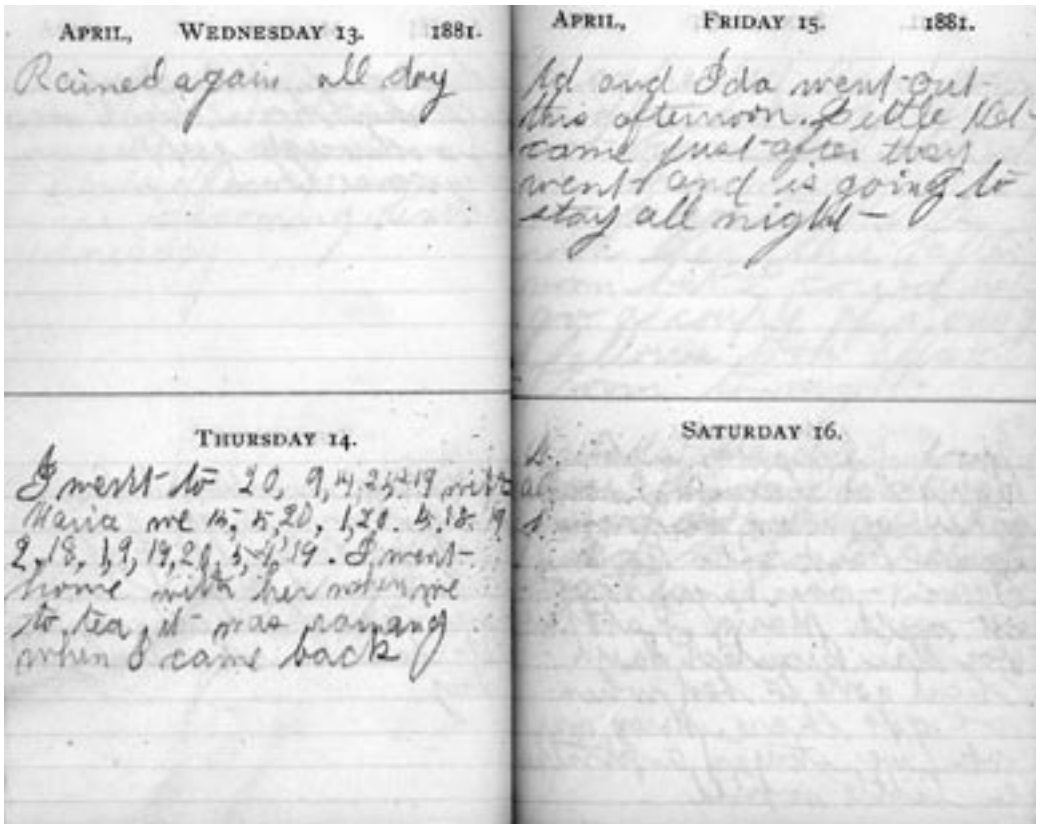 APRIL, WEDNESDAY 13. 1881.
Rained again all day
THURSDAY 14.
I went to 20, 9, 14, 25, 19 with
Maria we 15, 5, 20, 1, 20. 5, 18. 9
2, 18, 1, 9, 19, 20, 5, 4, 19. I went
home with her when we
to tea, it was raining
when I came back
APRIL, FRIDAY 15. 1881.
and Ida went out
this afternoon. Little
came just after they
went and is going to
stay all night —
SATURDAY 16.